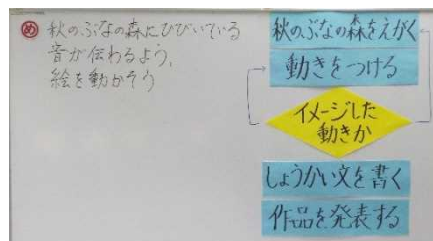 め 秋のぶなの森にひびいている
音が伝わるよう、
絵を動かそう
秋のぶなの森をえがく
動きをつける
イメージした
動きか
しょうかい文を書く
作品を発表する